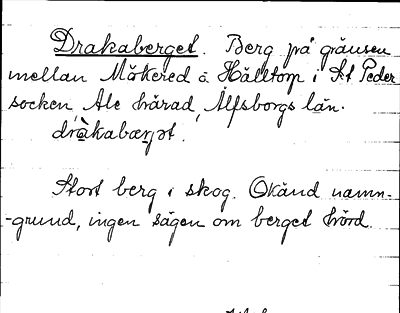 Drakaberget. Berg på gränsen
mellan Mökered o. Hålltorp i St Peder
socken, Ale härad, Älfsborgs län.
dràkabærjət.
Stort berg i skog. Okänd namn-
-grund, ingen sägen om berget hörd.